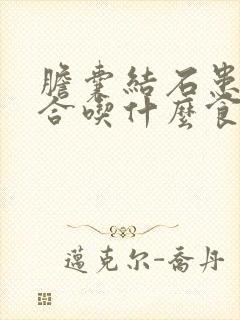 膽囊結石患
合喫什麼食
邁克尔-喬丹